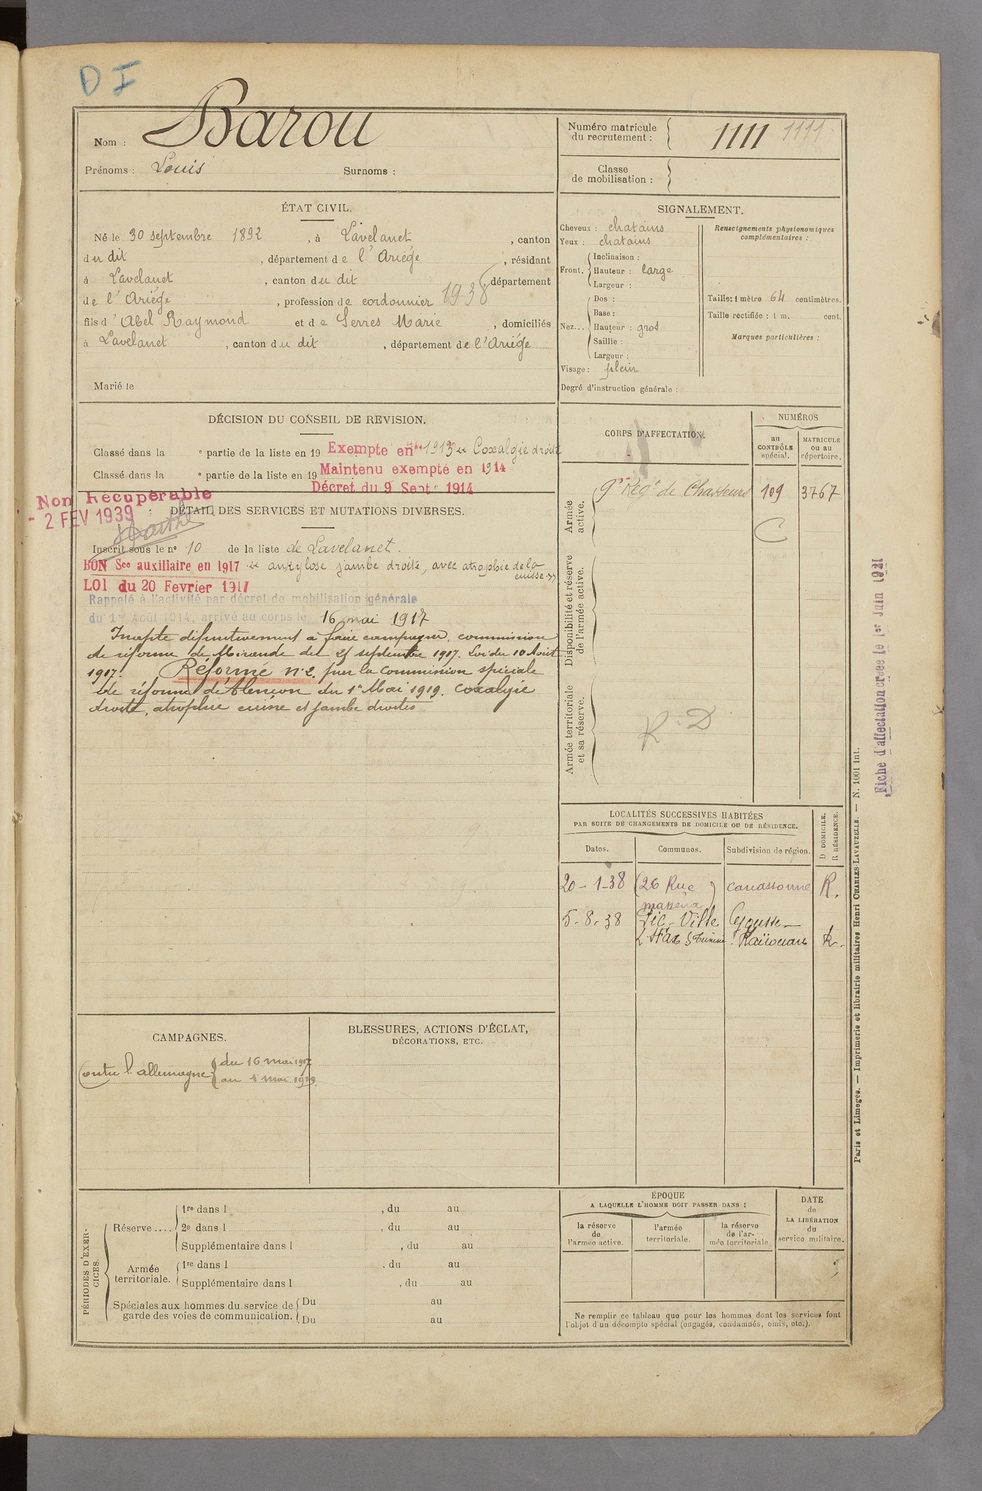 D I
Nom : Barou
Prénoms : Louis Surnoms :
Numéro matricule du recrutement : 1111 1111
Classe de mobilisation :
ÉTAT CIVIL.
Né le 30 septembre 1892, à Lavelanet, canton
du dit, département de l'Ariège, résidant
à Lavelanet, canton du dit, département
de l'Ariège, profession de cordonnier 1938
fils d'Abel Raymond et de Serres Marie, domiciliés
à Lavelanet, canton du dit, département de l'Ariége
Marié le
SIGNALEMENT.
Cheveux : chatains
Yeux : chatains
Front. Inclinaison :
Hauteur : large
Largeur :
Nez... Dos :
Base :
Hauteur : gros
Saillie :
Largeur :
Visage : plein
Degré d'instruction générale :
Renseignements physionomiques complémentaires :
Taille : 1 mètre 64 centimètres.
Taille rectifiée : 1 m. cent.
Marques particulières :
DÉCISION DU CONSEIL DE REVISION.
Classé dans la " partie de la liste en 19 Exempté en 1913 Coxalgie droite
Classé dans la " partie de la liste en 19 Maintenu exempté en 1914
Décret du 9 Sept. 1914
Non Récupérable
- 2 FEV 1939
DÉTAIL DES SERVICES ET MUTATIONS DIVERSES.
Inscrit sous le n° 10 de la liste de Lavelanet.
BON Sce auxiliaire en 1917 ankylose jambe droite, avec atrophie de la cuisse »
LOI du 20 Février 1917
Rappelé à l'activité par décret de mobilisation générale
du 1er Août 1914, arrivé au corps le 16 mai 1917
Inapte définitivement a faire campagne, commission
de réforme de Mirande del 25 septembre 1917. Loi du 10 Août
1917. Réformé n°2. par la Commission spéciale
de réforme d'Alençon du 1er Mai 1919. Coxalgie
droite, atrophie cuisse et jambe droites
CORPS D'AFFECTATION.
NUMÉROS
au CONTRÔLE spécial.
MATRICULE ou au répertoire.
Armée active.
9e Régt de Chasseurs 109 3767
C
Disponibilité et réserve de l'armée active.
Armée territoriale et sa réserve.
R. D
LOCALITÉS SUCCESSIVES HABITÉES
PAR SUITE DE CHANGEMENTS DE DOMICILE OU DE RÉSIDENCE.
Dates. Communes. Subdivision de région. D DOMICILE. R RÉSIDENCE.
20-1-38 (26 Rue masséna) Carcassonne R.
5-8-38 Pic-Ville
Sfax Kairouan R.
CAMPAGNES.
Contre l'allemagne du 16 mai 1917
au 1 mai 1919.
BLESSURES, ACTIONS D'ÉCLAT,
DÉCORATIONS, ETC.
PÉRIODES D'EXERCICES.
Réserve .... 1re dans l , du au
2e dans l , du au
Supplémentaire dans l , du au
Armée territoriale. 1re dans l , du au
Supplémentaire dans l , du au
Spéciales aux hommes du service de garde des voies de communication. Du au
Du au
ÉPOQUE
A LAQUELLE L'HOMME DOIT PASSER DANS :
la réserve de l'armée active.
l'armée territoriale.
la réserve de l'armée territoriale.
DATE de LA LIBÉRATION du service militaire.
Ne remplir ce tableau que pour les hommes dont les services font
l'objet d'un décompte spécial (engagés, condamnés, omis, etc.).
Paris et Limoges. — Imprimerie et librairie militaires Henri CHARLES-LAVAUZELLE. — N. 1001 int.
Fiche d'affectation créée le 1er Juin 1921